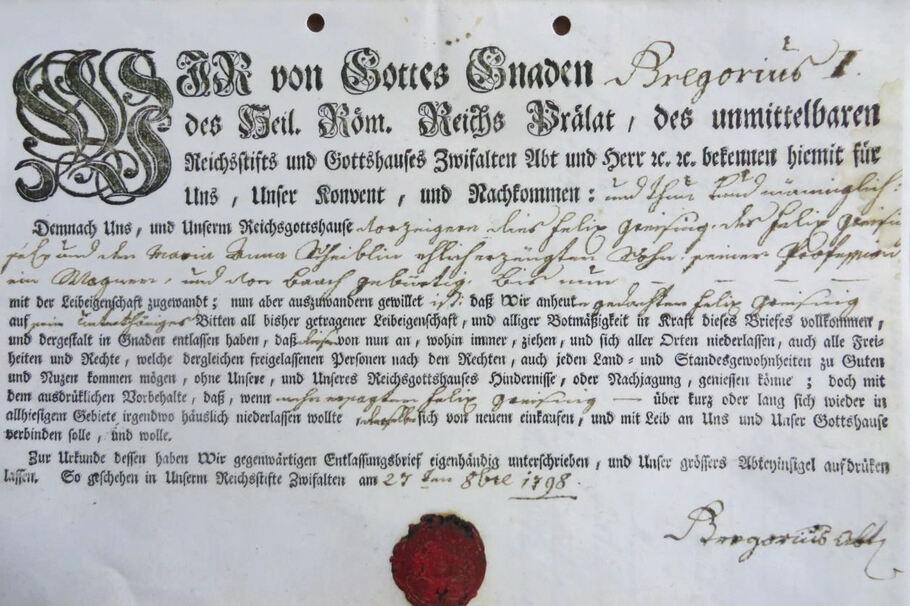 WIR von Gottes Gnaden Gregorius I.
des Heil. Röm. Reichs Prälat, des unmittelbaren
Reichsstifts und Gottshauses Zwifalten Abt und Herr ꝛc. ꝛc. bekennen hiemit für
Uns, Unser Konvent, und Nachkommen: und thun kund männiglich:
Demnach Uns, und Unserm Reichsgottshause Vorzeigern dies Felix Greising, des Felix
und der Maria Anna Scheiblin ehelich erzeugten Sohn, seiner Profession
ein Wagner, und von Baach gebürtig, bis nun
mit der Leibeigenschaft zugewandt; nun aber auszuwandern gewillet ist: daß Wir anheute gedachten Felix Greising
auf sein Bitten all bisher getragener Leibeigenschaft, und alliger Botmäßigkeit in Kraft dieses Briefes vollkommen,
und dergestalt in Gnaden entlassen haben, daß dieser von nun an, wohin immer, ziehen, und sich aller Orten niederlassen, auch alle Frei-
heiten und Rechte, welche dergleichen freigelassenen Personen nach den Rechten, auch jeden Land- und Standesgewohnheiten zu Guten
und Nuzen kommen mögen, ohne Unsere, und Unseres Reichsgottshauses Hindernisse, oder Nachjagung, geniessen könne; doch mit
dem ausdrüklichen Vorbehalte, daß, wenn Felix Greising — über kurz oder lang sich wieder in
allhiesigem Gebiete irgendwo häuslich niederlassen wollte, derselbe sich von neuem einkaufen, und mit Leib an Uns und Unser Gottshause
verbinden solle, und wolle.
Zur Urkunde dessen haben Wir gegenwärtigen Entlassungsbrief eigenhändig unterschrieben, und Unser grössers Abteyinsigel aufdrüken
lassen. So geschehen in Unserm Reichsstifte Zwifalten am 27ten 8bre 1798.
Gregorius Abt